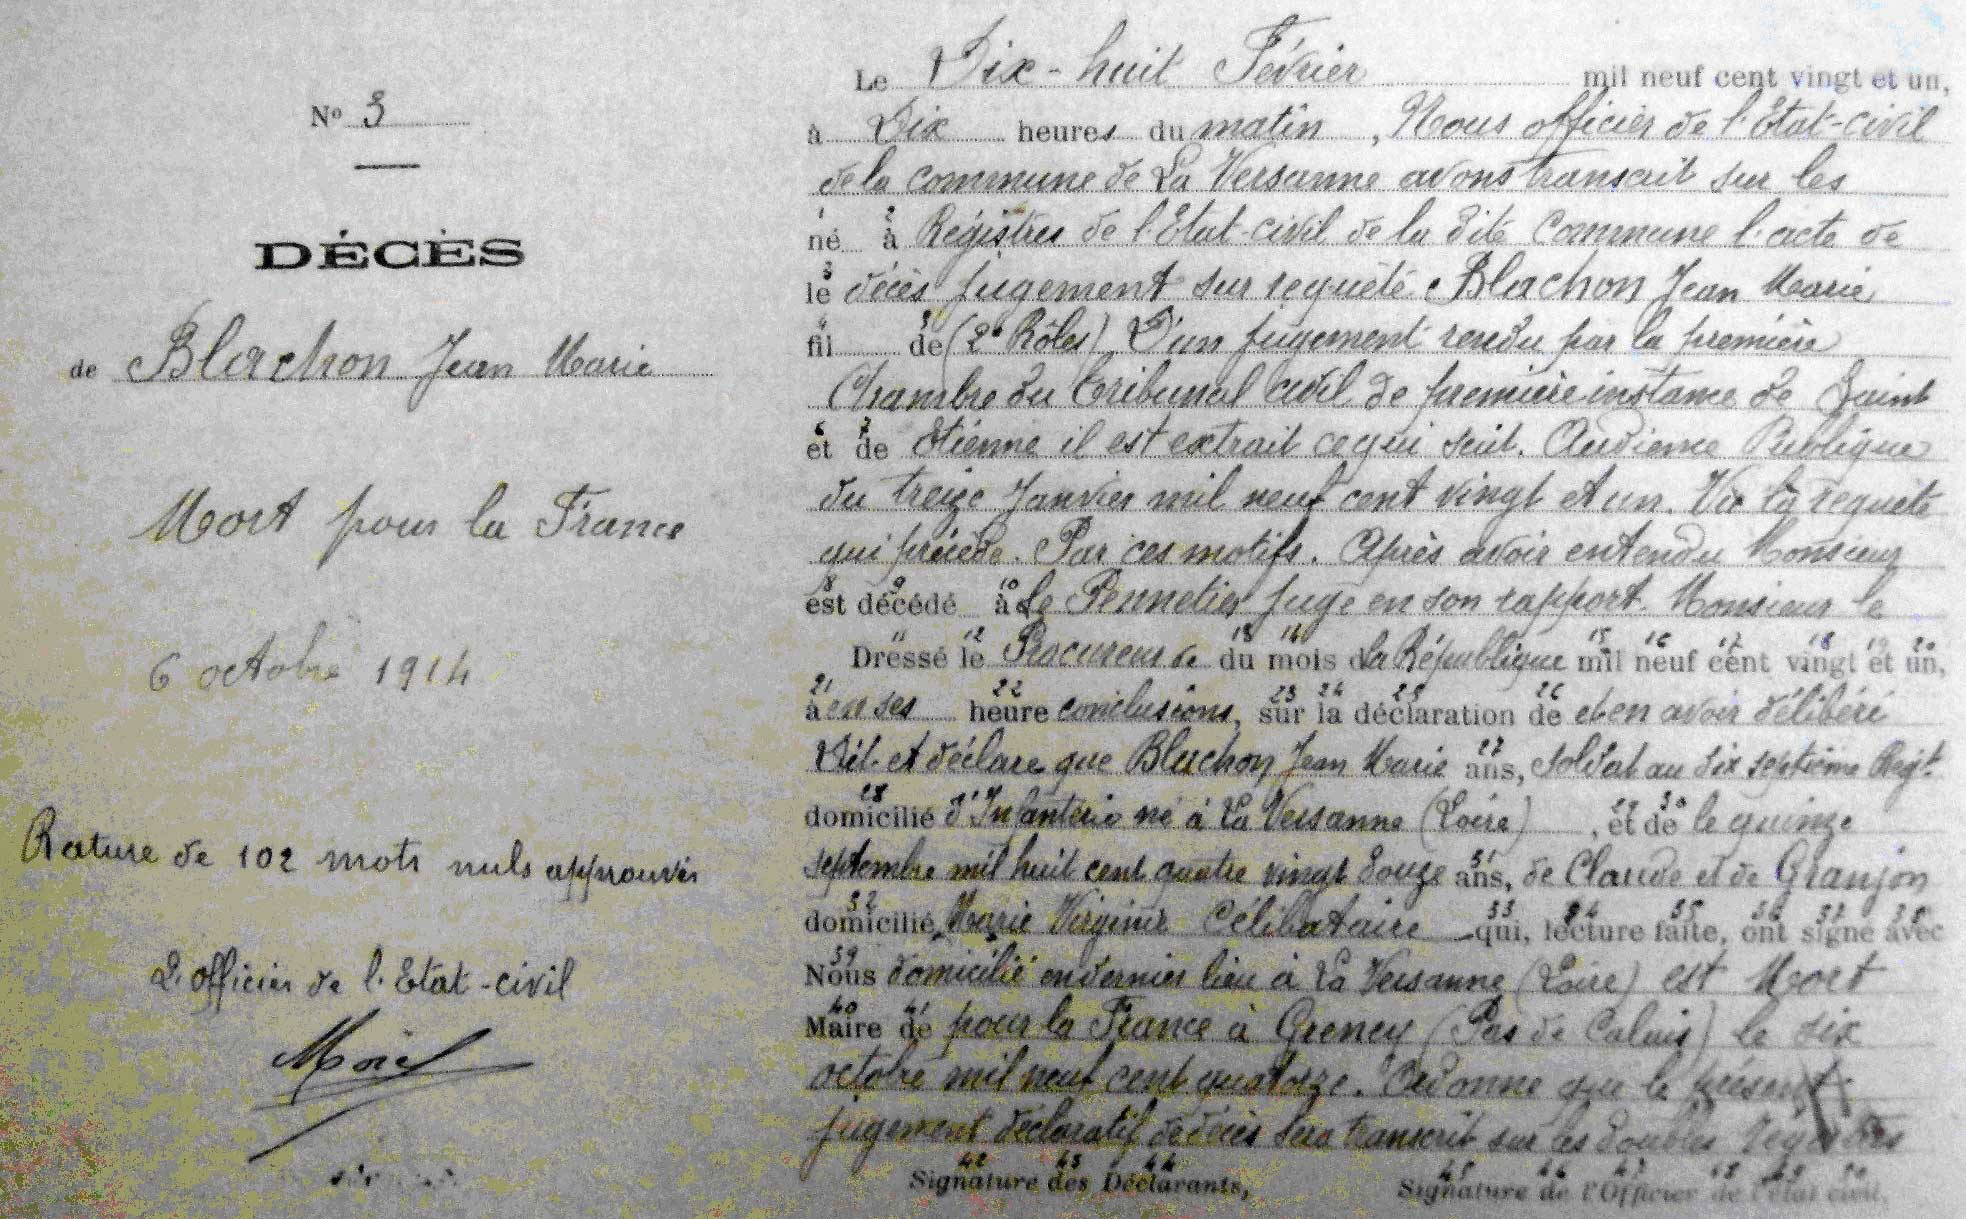 Nº 3
DÉCÈS
de Blachon Jean Marie
Mort pour la France
6 octobre 1914
Rature de 102 mots nuls approuvés
L'officier de l'Etat-civil
Morel
Le Dix-huit Février mil neuf cent vingt et un,
à Dix heures du matin, Nous officier de l'Etat-civil
de la commune de La Versanne avons transcrit sur les
1 2
né à Régistres de l'Etat-civil de la dite Commune l'acte de
3
le décès jugement sur requête Blachon Jean Marie
4 5
fil de (2 Rôles) D'un jugement rendu par la première
Chambre du Tribunal civil de première instance de Saint
6 7
et de Etienne il est extrait ce qui suit. Audience Publique
du treize Janvier mil neuf cent vingt et un. Vu la requête
qui précède. Par ces motifs. Après avoir entendu Monsieur
8 9 10
est décédé à Le Pennetier juge en son rapport. Monsieur le
11 12 13 14 15 16 17 18 19 20
Dressé le Procureur de du mois d la République mil neuf cent vingt et un,
21 22 23 24 25 26
à en ses heure conclusions, sur la déclaration de et en avoir délibéré
27
Dit et déclare que Blachon Jean Marie ans, soldat au dix septième Regt.
28 29 30
domicilié d'Infanterie né à La Versanne (Loire) , et de le quinze
31
septembre mil huit cent quatre vingt douze ans, de Claude et de Granjon
32 33 34 35 36 37 38
domicilié Marie Virginie Célibataire qui, lecture faite, ont signé avec
39
Nous domicilié en dernier lieu à La Versanne (Loire) est Mort
40 41
Maire de pour la France à Grency (Pas de Calais) le six
octobre mil neuf cent quatorze. Ordonne que le présent
jugement déclaratif de décès sera transcrit sur les doubles registres
42 43 44 45 46 47 48 49 50
Signature des Déclarants, Signature de l'Officier de l'état civil,